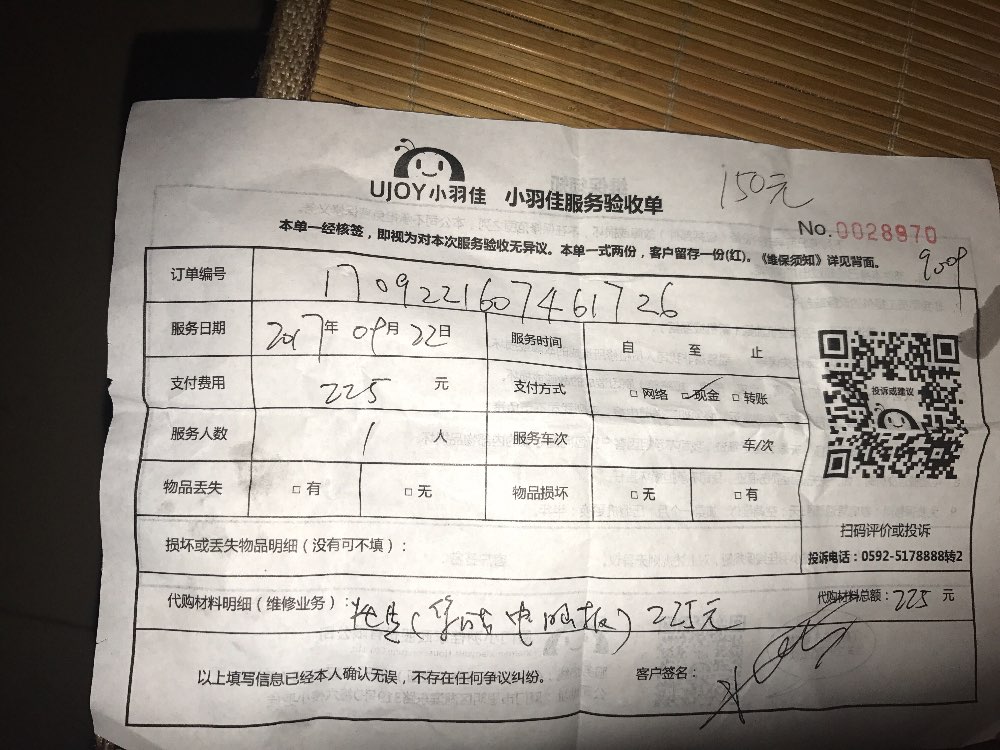 UJOY小羽佳 小羽佳服务验收单
150元
No.0028970
本单一经核签，即视为对本次服务验收无异议。本单一式两份，客户留存一份(红)。《维保须知》详见背面。
订单编号 170922160746​1726
服务日期 2017年09月22日 服务时间 自 至 止
支付费用 225 元 支付方式 □网络 □现金 □转账
投诉或建议
服务人数 1 人 服务车次 车/次
物品丢失 □有 □无 物品损坏 □无 □有
扫码评价或投诉
损坏或丢失物品明细（没有可不填）：
投诉电话：0592-5178888转2
代购材料明细（维修业务）： 电 板) 225元
代购材料总额：225 元
以上填写信息已经本人确认无误，不存在任何争议纠纷。 客户签名：